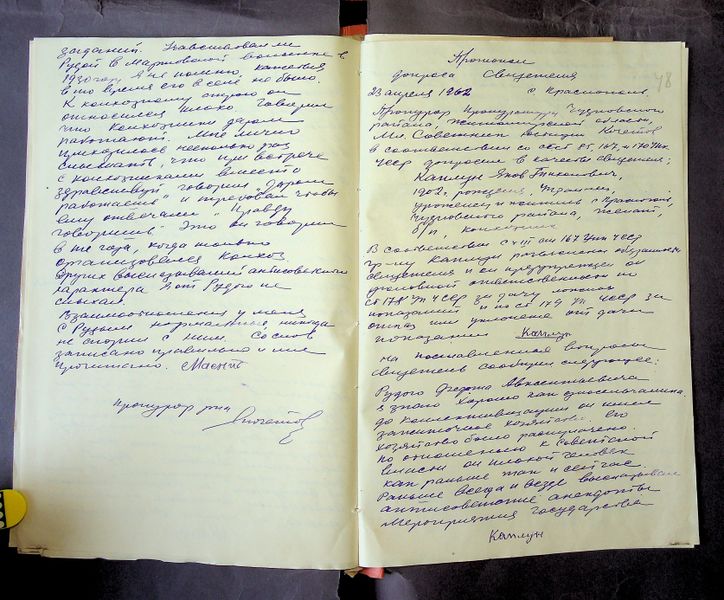 заданий. Участвовал ли
Рудой в Мартовской волынке в
1930 году я не помню, кажется
в то время его в селе не было.
К колхозному строю он
относился плохо говорил
что колхозники даром
работают. Мне лично
приходилось несколько раз
слышать, что при встрече
с колхозниками вместо
здравствуй говорил "даром
работаете" и требовал чтобы
ему отвечали "Правду
говоришь". Это он говорил
в те года, когда только
организовался колхоз.
Других высказываний антисоветского
характера от Рудого не
слыхал.
Взаимоотношения у меня
с Рудым нормальные, никогда
не спорил с ним. Со слов
записано правильно и мне
прочитано.
Прокурор р-на
78
Протокол
допроса свидетеля
23 апреля 1962 с Краснополь.
Прокурор Прокуратуры Чудновского
района Житомирской области,
Мл. Советник юстиции Кочетов
в соответствии со ст ст 85, 167, и 170 УПК
УССР допросил в качестве свидетеля:
Каплун Яков
1902, рождения, Украинец,
уроженец и житель с Краснополь,
Чудновского района, женат,
б/п, колхозник
В соответствии с ч III ст 167 УПК УССР
гр-ну Каплун разъяснены обязанности
свидетеля и он предупрежден об
уголовной ответственности по
ст 178 УК УССР за дачу ложных
показаний и по ст 179 УК УССР за
отказ или уклонение от дачи
показания Каплун
на поставленные вопросы
свидетель сообщил следующее:
Рудого Федота Авксентьевича
я знаю хорошо как односельчанина.
до коллективизации он имел
зажиточное хозяйство его
хозяйство было раскулачено.
по отношению к Советской
власти он плохой человек
как раньше так и сейчас.
Раньше всегда и везде высказывал
антисоветские анекдоты
мероприятия государства
Каплун